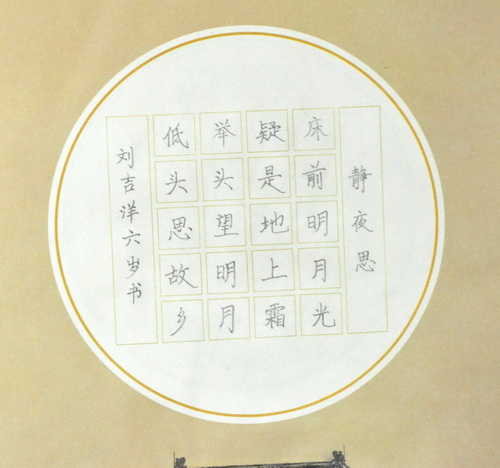 静夜思
床前明月光
疑是地上霜
举头望明月
低头思故乡
刘吉洋六岁书